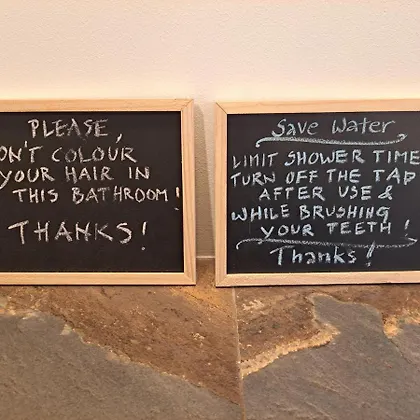 PLEASE,
ON'T COLOUR
YOUR HAIR IN
THIS BATHROOM!
THANKS!
Save Water
LIMIT SHOWER TIME
TURN OFF THE TAP
AFTER USE &
WHILE BRUSHING
YOUR TEETH!
Thanks!